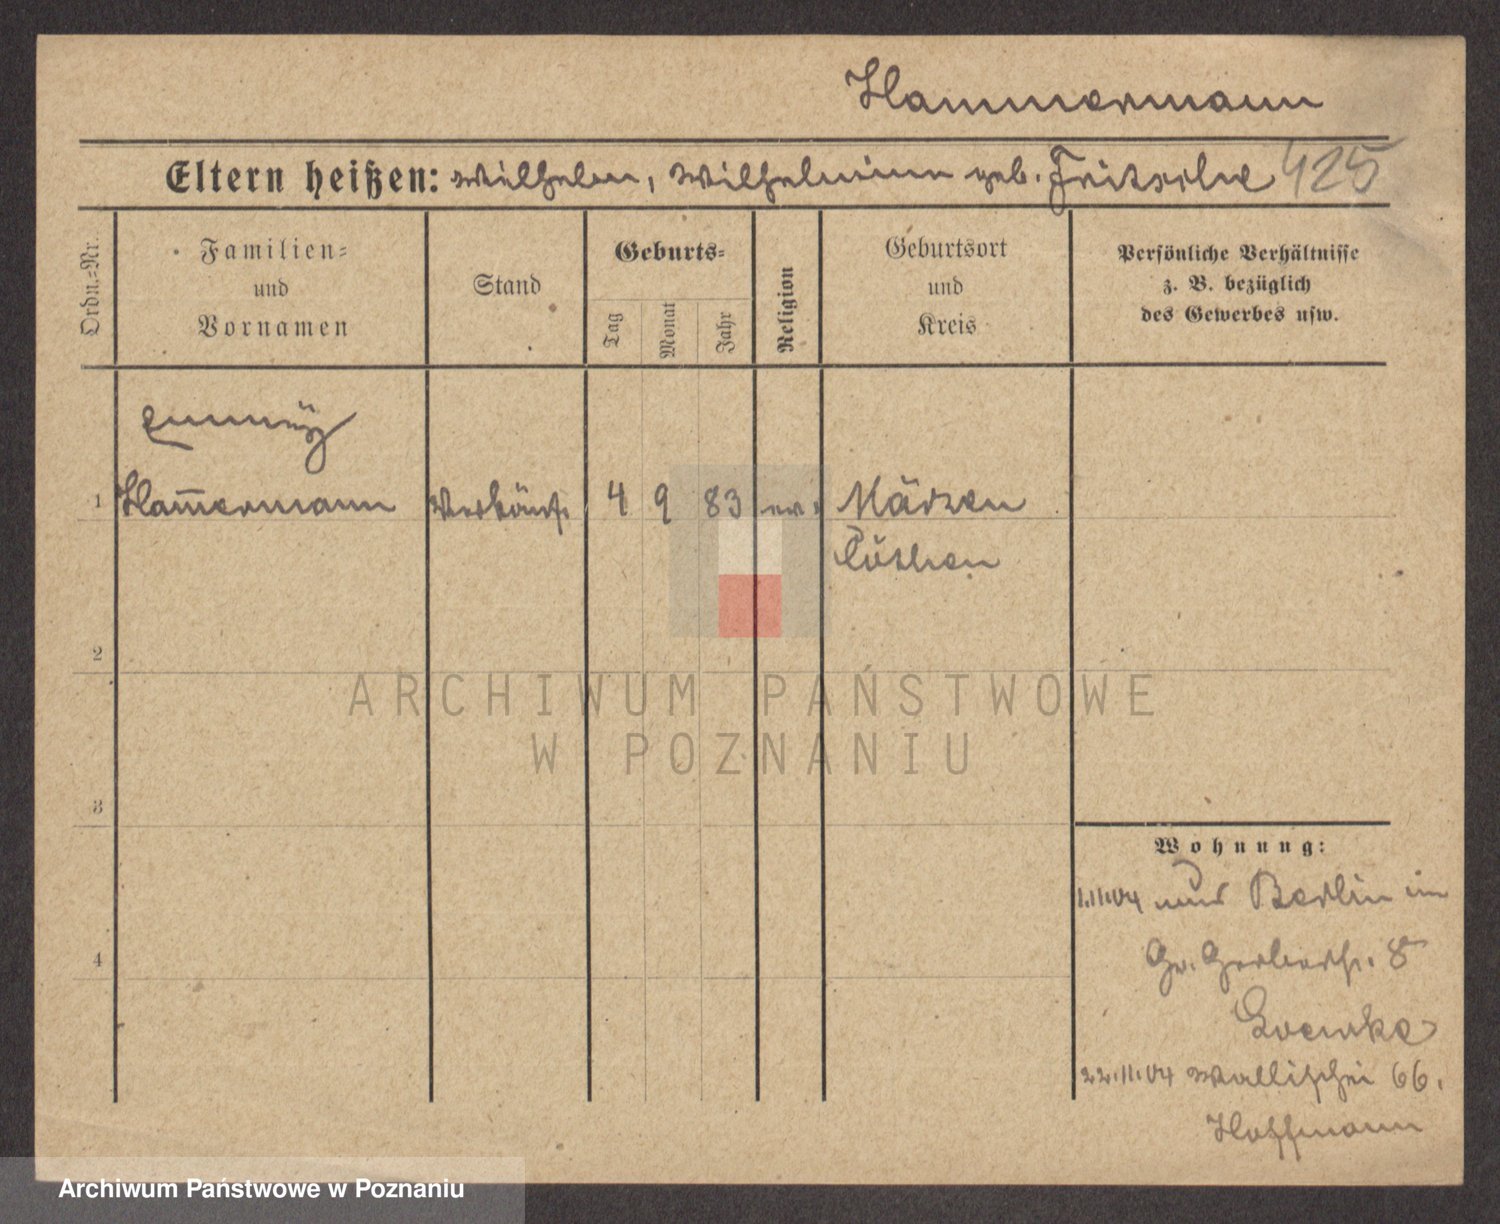 Hammermann
Eltern heißen: Wilhelm, Wilhelmine geb. Fritsche 425
Ordn.=Nr.
Familien=
und
Vornamen
Stand
Geburts=
Tag
Monat
Jahr
Religion
Geburtsort
und
Kreis
Persönliche Verhältnisse
z. B. bezüglich
des Gewerbes usw.
1
Ham̅ermann
Verkäuf.
4 9 83 ev.
Märzen
Cöthen
2
3
4
Wohnung:
1.11.04 aus Berlin im
Gr. Gerberstr. 8
22.11.04 Wallischei 66.
Hoffmann
ARCHIWUM PAŃSTWOWE
W POZNANIU
Archiwum Państwowe w Poznaniu